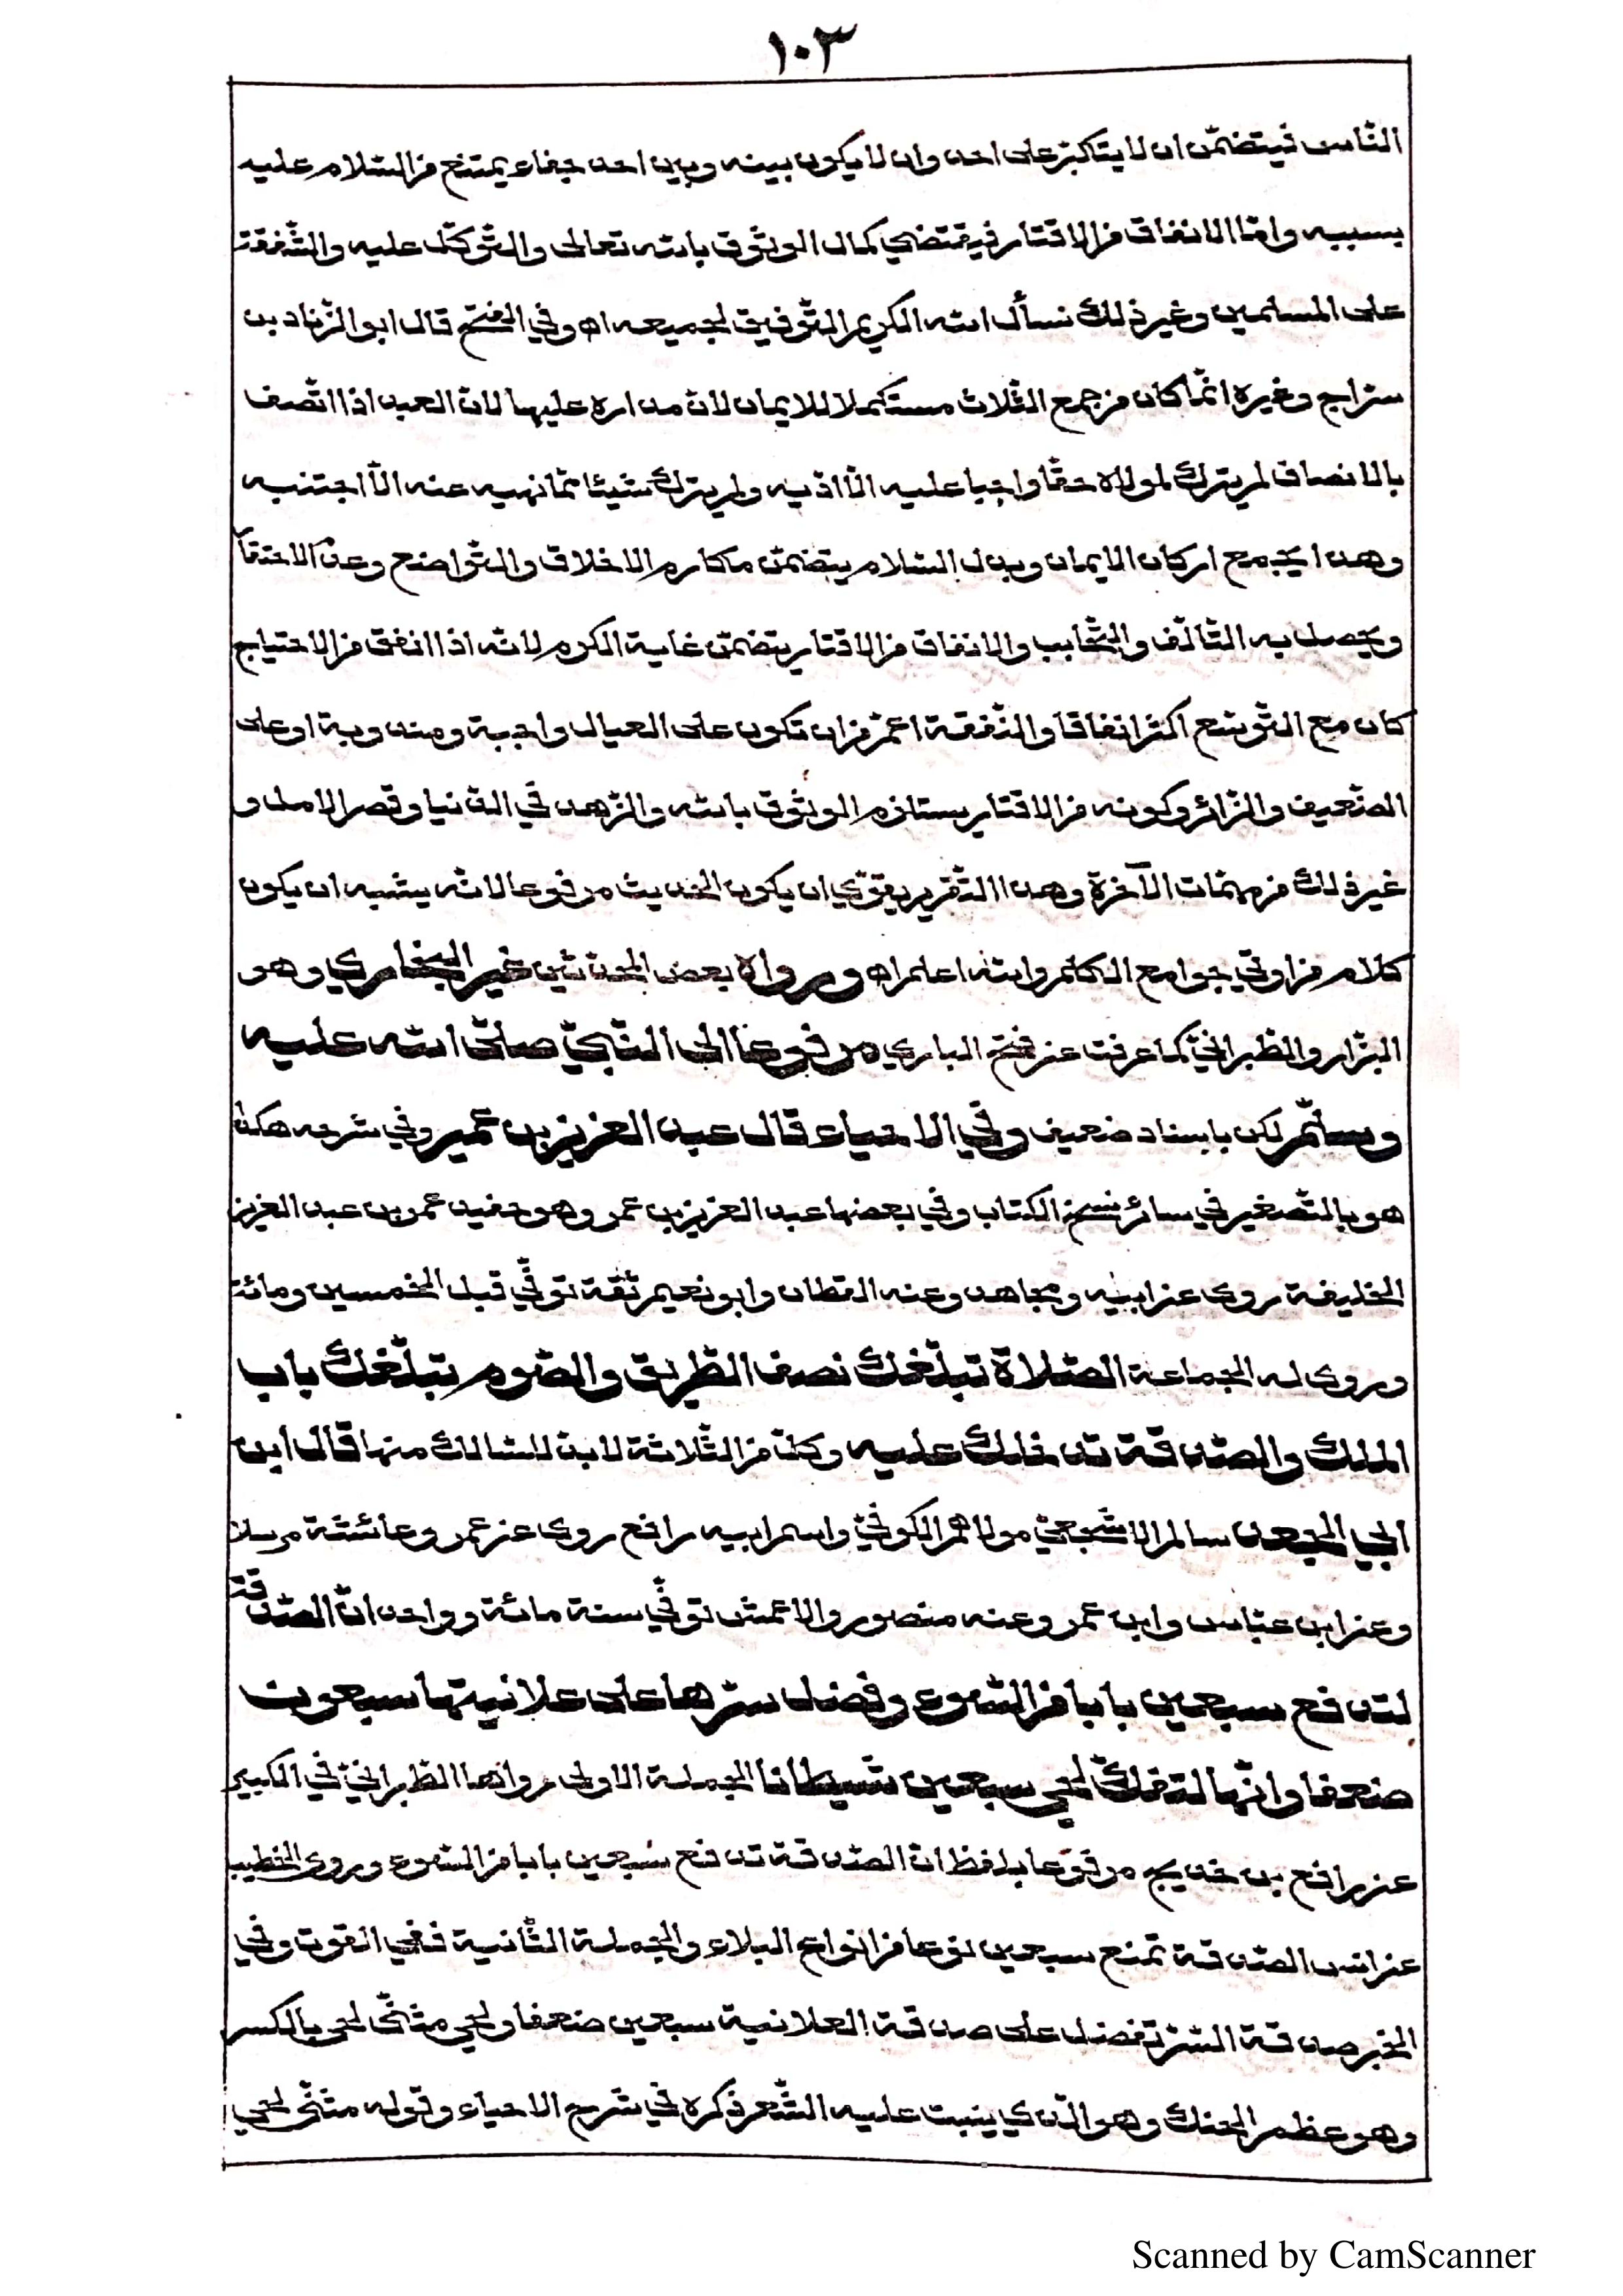 ١٠٣
النّاس فيتضمّن ان لا يتاكبّر على احد وان لا يكون بينه وبين احد جفاء يمتنع من السّلام عليه
بسببه وامّا الانفاق من الاقتار فيقتضي كمال الوثوق بالله تعالى والتّوكّل عليه والشّفقة
على المسلمين وغير ذلك نسأل الله الكريم التّوفيق لجميعه اه وفي الفتح قال ابو الزّناد بن
سرّاج وغيره انّما كان من جمع الثّلاث مستكملا للايمان لانّ مداره عليها لانّ العبد اذا اتّصف
بالانصاف لم يترك لمولاه حقّا واجبا عليه الّا ادّيه ولم يترك شيئا ممّا نهيه عنه الّا اجتنبه
وهذا يجمع اركان الايمان وبذل السّلام يتضمّن مكارم الاخلاق والتّواضع وعدم الاحتقار
ويحصل به التّألّف والتّحابب والانفاق من الاقتار يتضمّن غاية الكرم لانّه اذا انفق من الاحتياج
كان مع التّوسّع اكثر انفاقا والنّفقة اعمّ من ان تكون على العيال واجبة ومندوبة او على
الضّعيف والزّائر وكونه من الاقتار يستلزم الوثوق بالله والزّهد في الدّنيا وقصر الامل و
غير ذلك من مهمّات الآخرة وهذا التّقرير يقوّي ان يكون الحديث مرفوعا لانّه يشبه ان يكون
كلام من اوتي جوامع الكلم والله اعلم اه ورواه بعض المحدّثين غير البخاري وهو
البزّار والطّبرانيّ كما عرفت عن فتح الباري مرفوعا الى النّبيّ صلّى الله عليه
وسلّم لكن باسناد ضعيف وفي الاحياء قال عبد العزيز بن عمير وفي شرحه هكذا
هو بالتّصغير في سائر نسخ الكتاب وفي بعضها عبد العزيز بن عمر وهو حفيد عمر بن عبد العزيز
الخليفة روى عن ابيه ومجاهد وعنه القطان وابو نعيم ثقة توفّي قبل الخمسين ومائة
وروى له الجماعة الصّلاة تبلّغك نصف الطّريق والصّوم يبلّغك باب
الملك والصّدقة تدخلك عليه وكلّ من الثّلاثة لا بدّ للسّالك منها قال ابن
ابي الجعد سالم الاشجعيّ مولاهم الكوفيّ واسم ابيه رافع روى عن عمر وعائشة مرسلا
وعن ابن عبّاس وابن عمر وعنه منصور والاعمش توفّي سنة مائة وواحد انّ الصّدقة
لتدفع سبعين بابا من السّوء وفضل سرّها على علانيتها سبعون
ضعفا وانّها لتفكّ لحي سبعين شيطانا الجملة الاولى رواها الطّبرانيّ في الكبير
عن رافع بن خديج مرفوعا بلفظ انّ الصّدقة تدفع سبعين بابا من السّوء وروى الخطيب
عن انس الصّدقة تمنع سبعين نوعا من انواع البلاء والجملة الثّانية ففي القوت وفي
الخبر صدقة السّرّ تفضل على صدقة العلانية سبعين ضعفا ولحي مثنّى لحي بالكسر
وهو عظم الحنك وهو الّذي ينبت عليه الشّعر ذكره في شرح الاحياء وقوله مثنّى لحي
Scanned by CamScanner